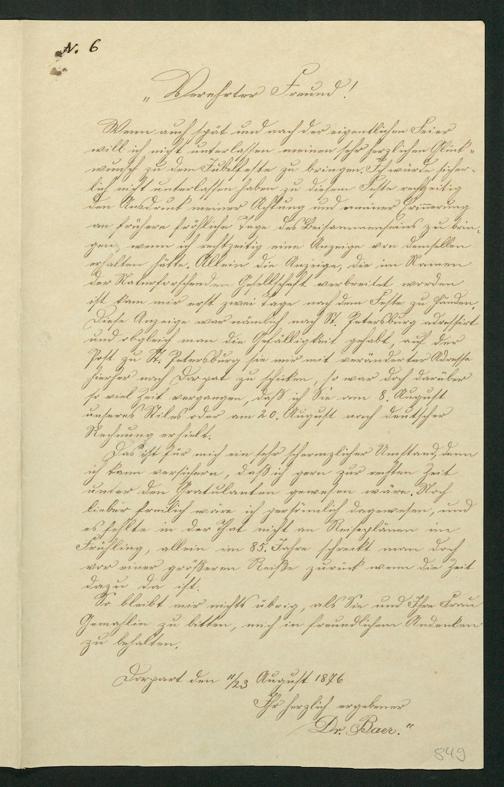 N. 6
„Verehrter Freund!
Wenn auch spät und nach der eigentlichen Feier
will ich nicht unterlassen meinen sehr herzlichen Glück-
wunsch zu dem Jubelfeste zu bringen. Ich würde sicher-
lich nicht unterlassen haben zu diesem Feste rechtzeitig
den Ausdruck meiner Achtung und meiner Erinnerung
an frühere fröhliche Tage des Beisammenseins zu brin-
gen, wenn ich rechtzeitig eine Anzeige von demselben
erhalten hätte. Allein die Anzeige, die im Namen
der Naturforschenden Gesellschaft verbreitet worden
ist kam mir erst zwei Tage nach dem Feste zu Händen.
Diese Anzeige war nämlich nach St. Petersburg adressirt
und obgleich man die Gefälligkeit gehabt, auf der
Post zu St. Petersburg sie mir mit veränderter Adresse
hierher nach Dorpat zu schicken, so war doch darüber
so viel Zeit vergangen, daß ich sie am 8. August
unseres Stiles oder am 20. August nach deutscher
Rechnung erhielt.
Das ist für mich ein sehr schmerzlicher Umstand, denn
ich kann versichern, daß ich gern zur rechten Zeit
unter den Gratulanten gewesen wäre. Noch
lieber freilich wäre ich persönlich dagewesen, und
es fehlte in der That nicht an Reiseplänen im
Frühling, allein im 85. Jahre schreckt man doch
vor einer größeren Reise zurück wenn die Zeit
dazu da ist.
So bleibt mir nichts übrig, als Sie und Ihre Frau
Gemahlin zu bitten, mich in freundlichem Andenken
zu behalten.
Dorpart den 11/23 August 1876
Ihr herzlich ergebener
Dr. Baer.“
849